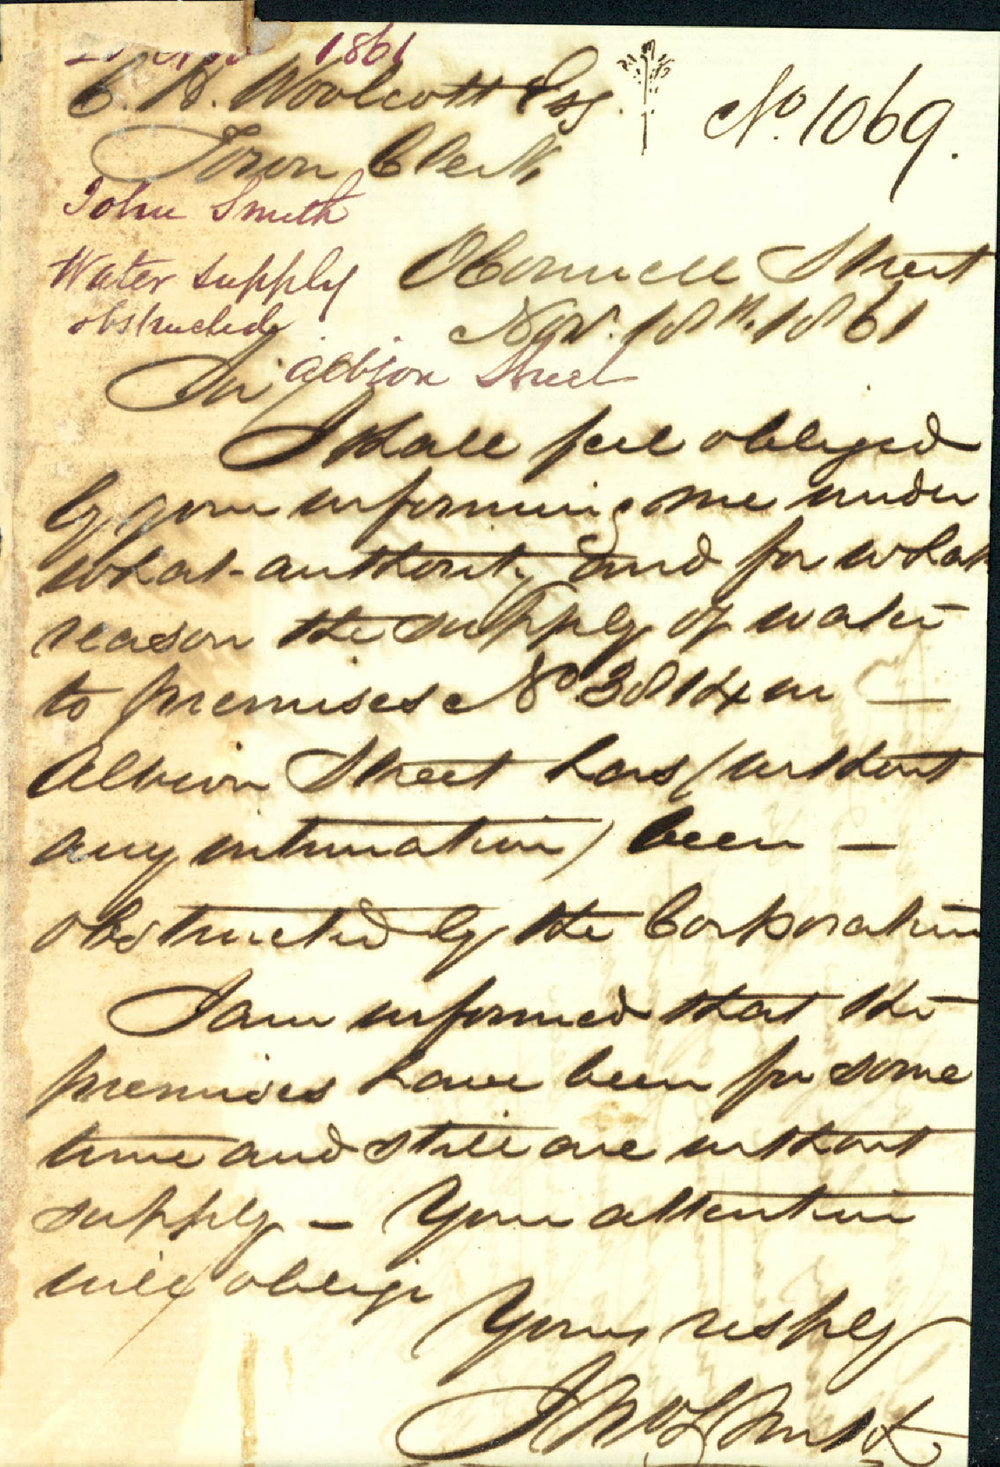 1861
C. H. Woolcott Esq.
No. 1069.
Town Clerk
John Smith
Water supply
obstructed
Albion Street
OConnell Street
Nov. 18th. 1861
Sir
I shall feel obliged
by your informing me under
what authority and for what
reason the supply of water
to premises No 38 &
Albion Street has (without
any intimation) been —
obstructed by the Corporation
I am informed that the
premises have been for some
time and still are without
supply — Your attention
will oblige
Yours resply
Jno Smith